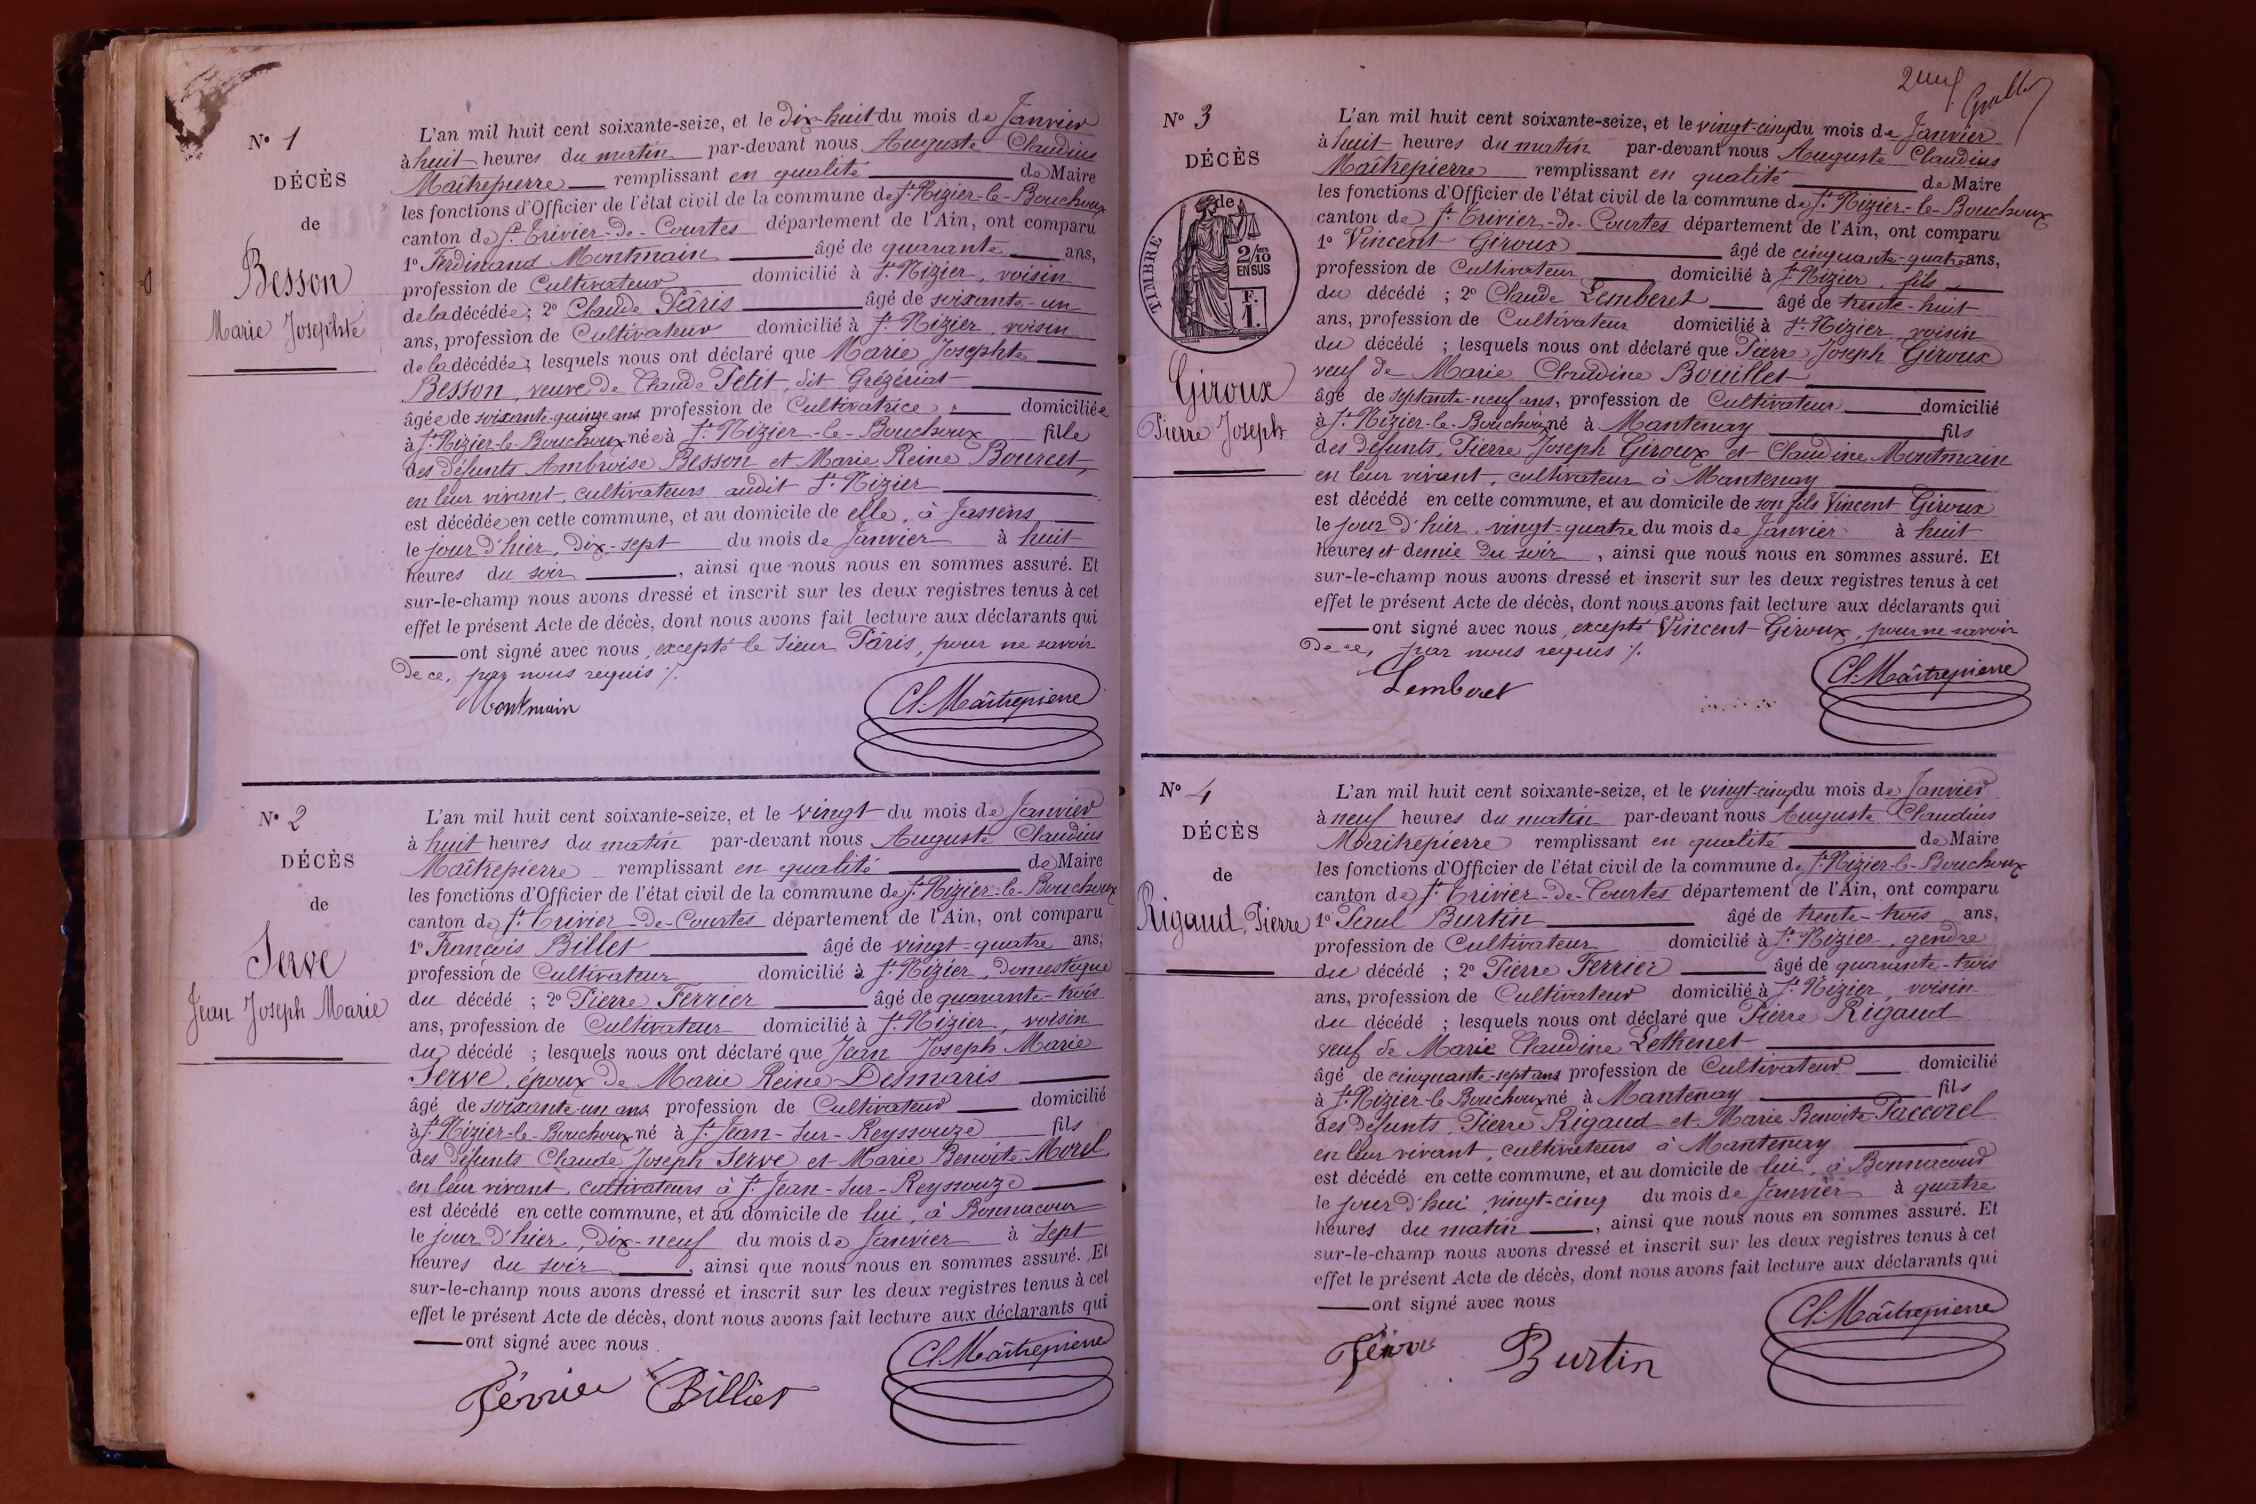 N° 1
DÉCÈS
de
Besson
Marie Josephte
L'an mil huit cent soixante-seize, et le dix-huit du mois de Janvier
à huit heures du matin par-devant nous Auguste Claudius
Maîtrepierre remplissant en qualité de Maire
les fonctions d'Officier de l'état civil de la commune de St. Nizier-le-Bouchoux
canton de St. Trivier-de-Courtes département de l'Ain, ont comparu
1° Ferdinand Montmain âgé de quarante ans,
profession de Cultivateur domicilié à St. Nizier, voisin
de la décédée; 2° Claude Pâris âgé de soixante-un
ans, profession de Cultivateur domicilié à St. Nizier, voisin
de la décédée; lesquels nous ont déclaré que Marie Josephte
Besson, veuve de Claude Petit, dit Grézériat
âgée de soixante-quinze ans profession de Cultivatrice, domiciliée
à St. Nizier-le-Bouchoux née à St. Nizier-le-Bouchoux fille
des défunts Ambroise Besson et Marie Reine Bourcet,
en leur vivant, cultivateurs audit St. Nizier
est décédée en cette commune, et au domicile de elle, à Jassens
le jour d'hier, dix-sept du mois de Janvier à huit
heures du soir, ainsi que nous nous en sommes assuré. Et
sur-le-champ nous avons dressé et inscrit sur les deux registres tenus à cet
effet le présent Acte de décès, dont nous avons fait lecture aux déclarants qui
ont signé avec nous, excepté le sieur Pâris, pour ne savoir
de ce, par nous requis ./.
Montmain Cl. Maîtrepierre
N° 2
DÉCÈS
de
Serve
Jean Joseph Marie
L'an mil huit cent soixante-seize, et le vingt du mois de Janvier
à huit heures du matin par-devant nous Auguste Claudius
Maîtrepierre remplissant en qualité de Maire
les fonctions d'Officier de l'état civil de la commune de St. Nizier-le-Bouchoux
canton de St. Trivier-de-Courtes département de l'Ain, ont comparu
1° François Billet âgé de vingt-quatre ans,
profession de Cultivateur domicilié à St. Nizier, domestique
du décédé ; 2° Pierre Ferrier âgé de quarante-trois
ans, profession de Cultivateur domicilié à St. Nizier, voisin
du décédé ; lesquels nous ont déclaré que Jean Joseph Marie
Serve, époux de Marie Reine Desmaris
âgé de soixante-un ans profession de Cultivateur domicilié
à St. Nizier-le-Bouchoux né à St. Jean-sur-Reyssouze fils
des défunts Claude Joseph Serve et Marie Benoite Morel
en leur vivant, cultivateurs à St. Jean-sur-Reyssouze
est décédé en cette commune, et au domicile de lui, à Bonnacour
le jour d'hier, dix-neuf du mois de Janvier à sept
heures du soir, ainsi que nous nous en sommes assuré. Et
sur-le-champ nous avons dressé et inscrit sur les deux registres tenus à cet
effet le présent Acte de décès, dont nous avons fait lecture aux déclarants qui
ont signé avec nous.
Billiet Cl. Maîtrepierre
N° 3
DÉCÈS
de
TIMBRE
2/10
EN SUS
F.
1.
Giroux
Pierre Joseph
L'an mil huit cent soixante-seize, et le vingt-cinq du mois de Janvier
à huit heures du matin par-devant nous Auguste Claudius
Maîtrepierre remplissant en qualité de Maire
les fonctions d'Officier de l'état civil de la commune de St. Nizier-le-Bouchoux
canton de St. Trivier-de-Courtes département de l'Ain, ont comparu
1° Vincent Giroux âgé de cinquante-quatre ans,
profession de Cultivateur domicilié à St. Nizier, fils
du décédé ; 2° Claude Lemberet âgé de trente-huit
ans, profession de Cultivateur domicilié à St. Nizier, voisin
du décédé ; lesquels nous ont déclaré que Pierre Joseph Giroux
veuf de Marie Claudine Bouillet
âgé de septante-neuf ans, profession de Cultivateur domicilié
à St. Nizier-le-Bouchoux né à Mantenay fils
des défunts, Pierre Joseph Giroux et Claudine Montmain
en leur vivant, cultivateurs à Mantenay
est décédé en cette commune, et au domicile de son fils Vincent Giroux
le jour d'hier, vingt-quatre du mois de Janvier à huit
heures et demie du soir, ainsi que nous nous en sommes assuré. Et
sur-le-champ nous avons dressé et inscrit sur les deux registres tenus à cet
effet le présent Acte de décès, dont nous avons fait lecture aux déclarants qui
ont signé avec nous, excepté Vincent Giroux, pour ne savoir
de ce, par nous requis ./.
Lemberet Cl. Maîtrepierre
N° 4
DÉCÈS
de
Rigaud, Pierre
L'an mil huit cent soixante-seize, et le vingt-cinq du mois de Janvier
à neuf heures du matin par-devant nous Auguste Claudius
Maîtrepierre remplissant en qualité de Maire
les fonctions d'Officier de l'état civil de la commune de St. Nizier-le-Bouchoux
canton de St. Trivier-de-Courtes département de l'Ain, ont comparu
1° Paul Burtin âgé de trente-trois ans,
profession de Cultivateur domicilié à St. Nizier, gendre
du décédé ; 2° Pierre Ferrier âgé de quarante-trois
ans, profession de Cultivateur domicilié à St. Nizier, voisin
du décédé ; lesquels nous ont déclaré que Pierre Rigaud
veuf de Marie Claudine Lethenet
âgé de cinquante-sept ans profession de Cultivateur domicilié
à St. Nizier-le-Bouchoux né à Mantenay fils
des défunts, Pierre Rigaud et Marie Benoite Paccorel
en leur vivant, cultivateurs à Mantenay
est décédé en cette commune, et au domicile de lui, à Bonnacour
le jour d'hui vingt-cinq du mois de Janvier à quatre
heures du matin, ainsi que nous nous en sommes assuré. Et
sur-le-champ nous avons dressé et inscrit sur les deux registres tenus à cet
effet le présent Acte de décès, dont nous avons fait lecture aux déclarants qui
ont signé avec nous
Burtin Cl. Maîtrepierre